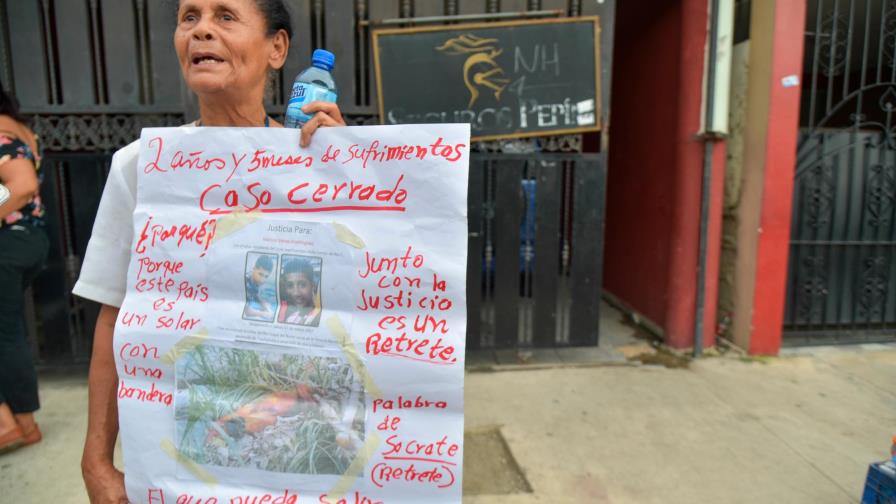 NH
4
SEGUROS PEPÍN
azul
2 años y 5 meses de sufrimientos
Caso Cerrado
¿Porqué?
Porque
este país
es
un solar
con
una
bandera
Justicia Para:
Junto
con la
Justicio
es un
Retrete.
palabra
de
Socrate
(Retrete)
El que pueda salva